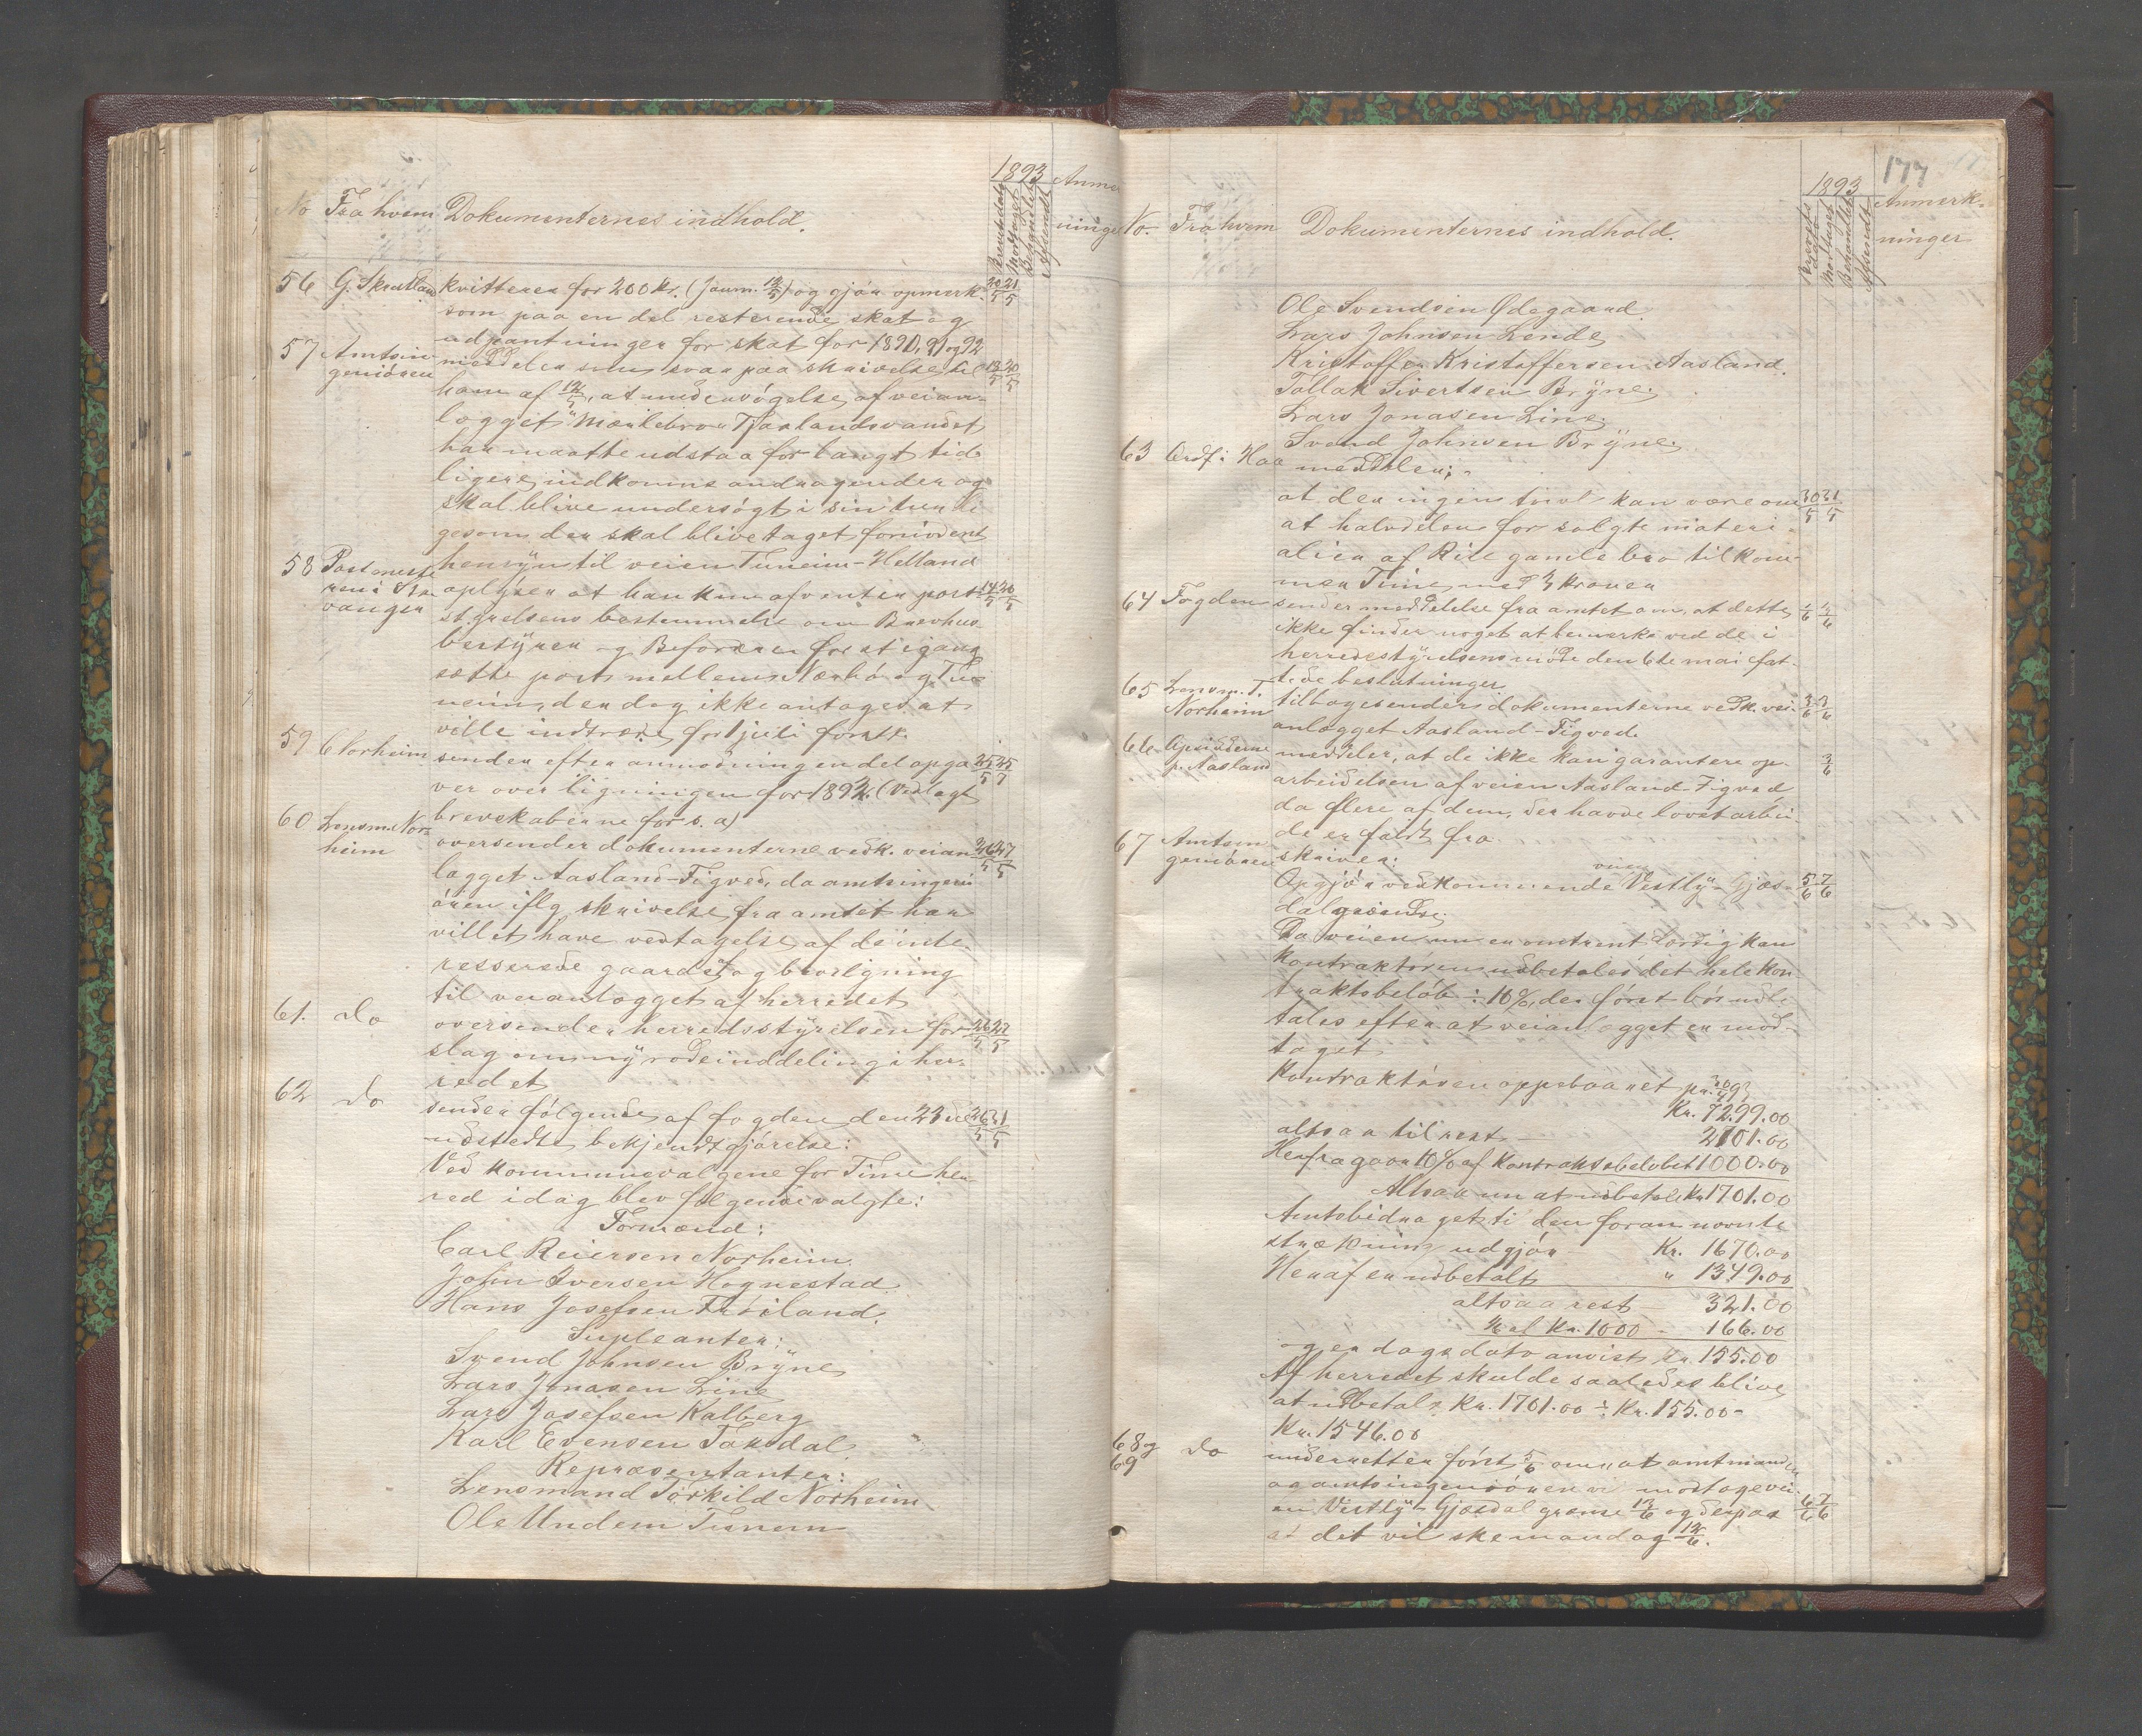 1893
No Fra hvem Dokumenternes indhold. Brevets dato Modtaget Behandlet Afsendt Anmærkninger
56 G. Skratland kvitterer for 200 kr. (Journ. 12/5) og gjør opmærk- 20/5 21/5
som paa en del resterende skat og
udpantninger for skat for 1890, 91 og 92
57 Amtsin- meddeler som svar paa skrivelse til 19/5 20/5
geniøren
ham af 12/5, at undersøgelse af veian-
lægget Mælebro-Tjaalandsvandet
har maatte udstaa for langt tid-
ligere indkomne andragender og
skal blive undersøgt i sin tur li
gesom der skal blive taget fornødent
hensyn til veien Tunheim-Helland
58 Postmeste oplyser at han kun afventer post- 14/5 20/5
ren i Sta
vanger
styrelsens bestemmelse om Brevhus-
bestyrer og Beforderer for at igang
sætte post mellem Nærbø og Tu
neim, der dog ikke antages at
ville indtræde før 1 juli førstk.
59 C Norheim sender efter anmodning en del opga 25/5 25/5
ver over ligningen for 1892. (Vedlagt
brevskaberne for s. a)
60 Lensm. Nor- oversender dokumenterne vedk. veian 26/5 27/5
heim
lægget Aasland-Tigved, da amtsingeni
øren iflg skrivelse fra amtet har
villet have vedtagelse af de inte-
resserede gaarde og bevilgning
til veianlægget af herredet
61. do oversender herredsstyrelsen for- 26/5 27/5
slag om ny rodeinddeling i her-
redet
62 do sender følgende af fogden den 23de 26/5 31/5
udstedte bekjendtgjørelse:
Ved kommunevalgene for Time her-
red idag blev følgende valgte:
Formænd:
Carl Reiersen Norheim.
John Iversen Hognestad
Hans Josefsen Frøiland.
Supleanter:
Svend Johnsen Bryne
Lars Jonasen Line
Lars Josefsen Kalberg
Karl Evensen Taksdal
Repræsentanter:
Lensmand Torkild Norheim
Ole Undem Tunem
177
1893
No. Fra hvem Dokumenternes indhold. Brevets dato Modtaget Behandlet Afsendt Anmærk-
ninger
Ole Svendsen Ødegaard.
Lars Johnsen Lende
Kristoffer Kristoffersen Aasland.
Tollak Sivertsen Bryne
Lars Jonasen Line
Svend Johnsen Bryne
63 Ordf: Haa meddeler:
at der ingen tvivl kan være om 30/5 31/5
at halvdelen for solgte materi-
alier af Rile gamle bro tilkom-
mer Time med 3 kroner
64 Fogden sender meddelelse fra amtet om, at dette
ikke finder noget at bemerke ved de i
herredsstyrelsens møde den 6te mai fat-
tede beslutninger
65 Lensm. T. tilbagesender dokumenterne vedk. vei- 3/6 3/6
Norheim
anlægget Aasland-Tigved.
66 Opsidderne meddeler, at de ikke kan garantere op- 3/6
p. Aasland
arbeidelsen af veien Aasland-Tigved
da flere af dem, der havde lovet arbei
de er faldt fra
67 Amtsin skriver:
geniøren
Opgjør vedkommende veien Vestly-Gjæs- 5/6 7/6
dalgrændse.
Da veien nu er omtrent færdig kan
kontraktøren udbetales det hele kon-
traktsbeløb ÷ 10%, der først bør udbe
tales efter at veianlægget er mod-
taget
Kontraktøren oppebaaret pr. 30/4 93
Kr. 7299.00
altsaa til rest 2701.00
Herfra gaar 10% af kontraktsbeløbet 1000.00
Altsaa nu at udbetale Kr 1701.00
Amtsbidraget til den foran nævnte
strækning udgjør Kr. 1670.00
Heraf er udbetalt " 1349.00
altsaa rest 321.00
1/6 af Kr. 1000 166.00
og er dags dato anvist kr. 155.00
Af herredet skulde saaledes blive
at udbetale Kr. 1701.00 ÷ Kr. 155.00 =
Kr. 1546.00
68 og do underretter først 5/6 om at amtmanden
69
og amtsingeniøren vil modtage vei- 6/6 7/6
en Vestly-Gjæsdal grænse 13/6 og derpaa
at det vil ske mandag 12/6.